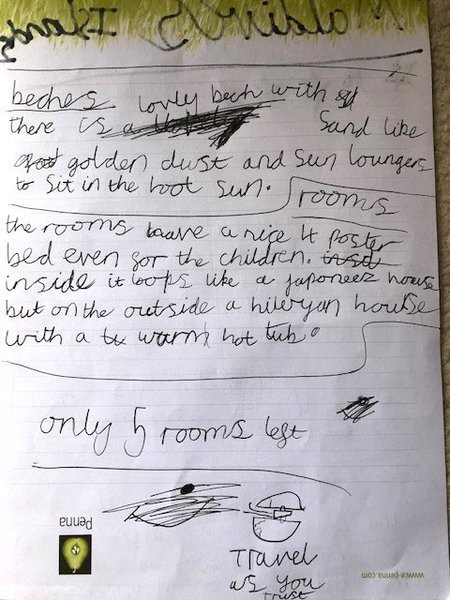 Maldivs Islands
beches
lovly bech with
there is a Sand like
golden dust and sun loungers
to sit in the hoot sun.
rooms
the rooms have a nice 4 poster
bed even for the children.
inside it loops like a japoneez house
but on the outside a hileryan house
with a warm hot tub.
only 5 rooms left
Travel
as you
trust
Penna
www.e-penna.com